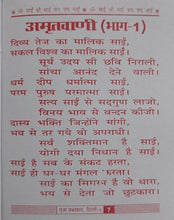 ॐ साईं श्री साईं जय जय साईं
अमृतवाणी (भाग-१)
दिव्य तेज का मालिक साईं,
सकल विश्व का मालिक साईं।
सूर्य उदय सी छवि निराली,
सांचा आनंद देने वाली।
धर्म दीप धर्मात्मा साईं,
परम पुरुष परमात्मा साईं।
सत्य साईं से सद्गुण लाजो,
विनय भाव से वन्दन कीजो।
दास्य भक्ति जिन्होंने मांगी,
भव से तर गये वो अपराधी।
सर्व शक्तिमान है साईं,
योगी दया निधान है साईं।
साईं है सब के संकट हरता,
साईं ही सबका पालन करता।
साईं का सिमरन है वो धारा,
भव से देता जो छुटकारा।
पूजा प्रकाशन, दिल्ली-६
7